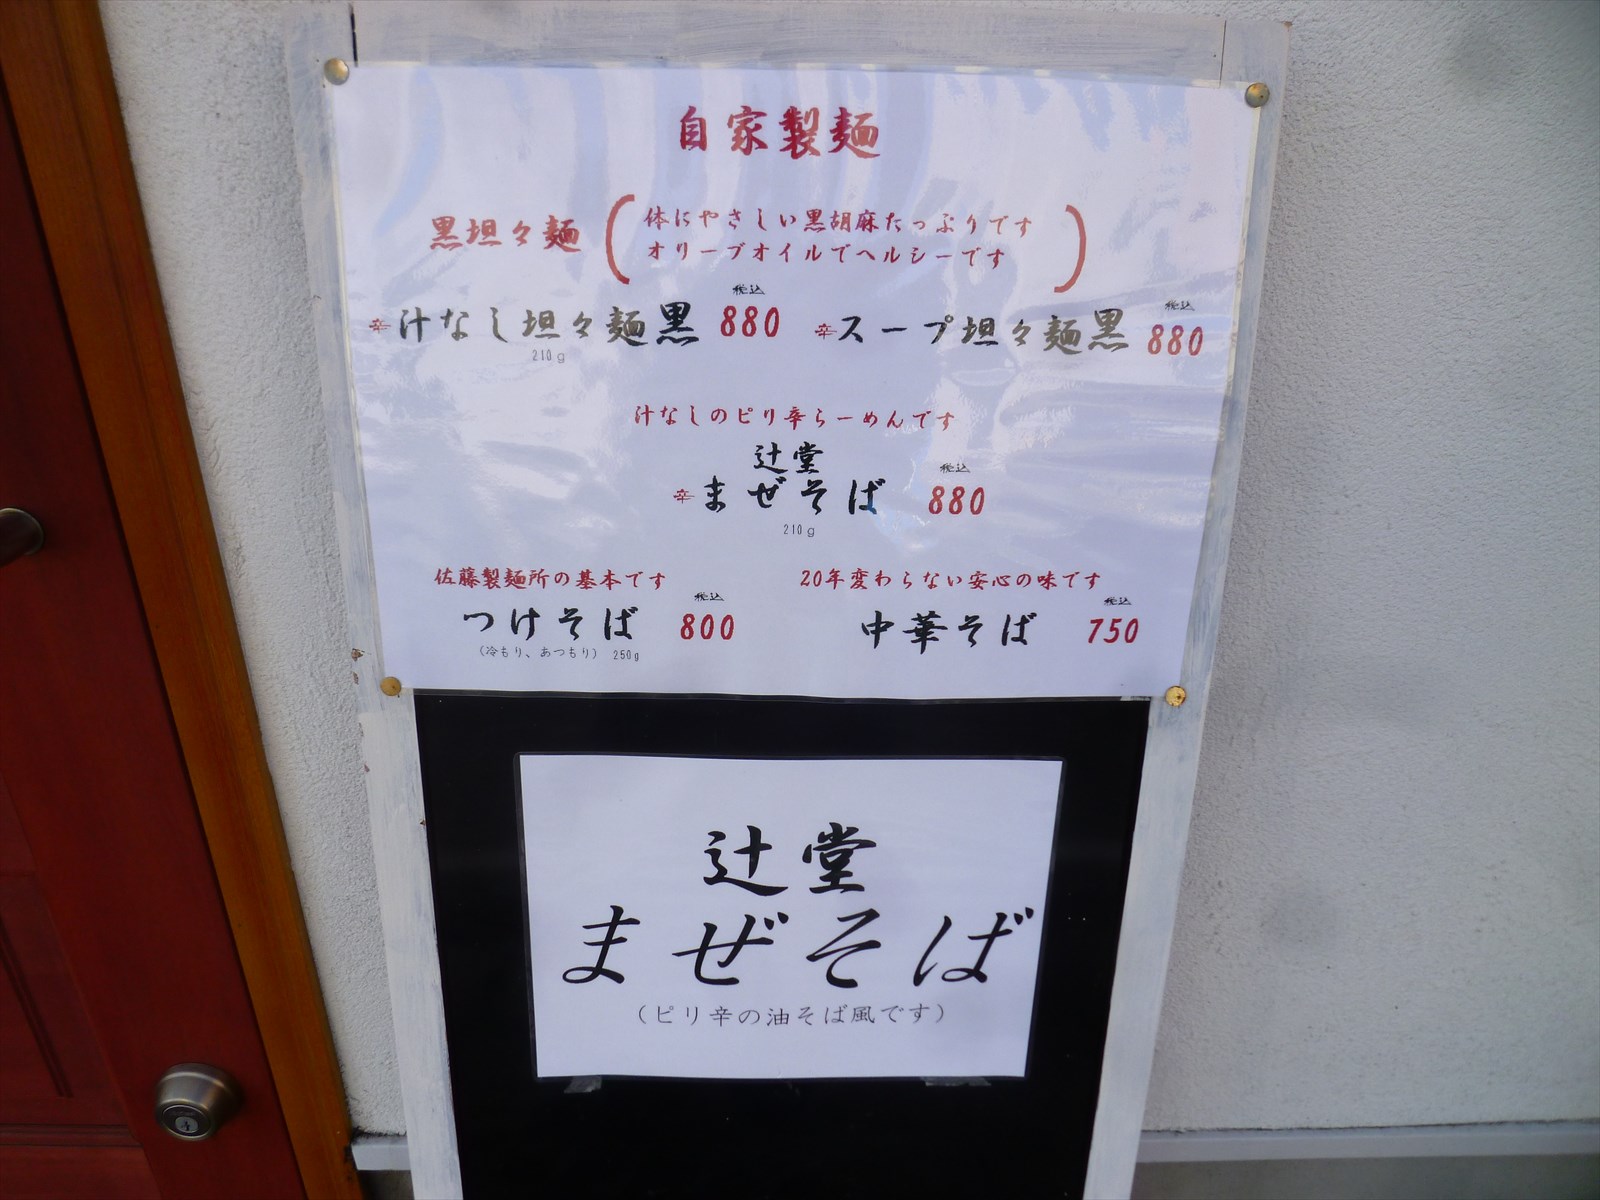 自家製麺
黒坦々麺
体にやさしい黒胡麻たっぷりです
オリーブオイルでヘルシーです
辛 汁なし坦々麺黒 税込 880
210g
辛 スープ坦々麺黒 税込 880
汁なしのピリ辛らーめんです
辻堂
辛 まぜそば 税込 880
210g
佐藤製麺所の基本です
つけそば 税込 800
(冷もり、あつもり) 250g
20年変わらない安心の味です
中華そば 税込 750
辻堂
まぜそば
(ピリ辛の油そば風です)